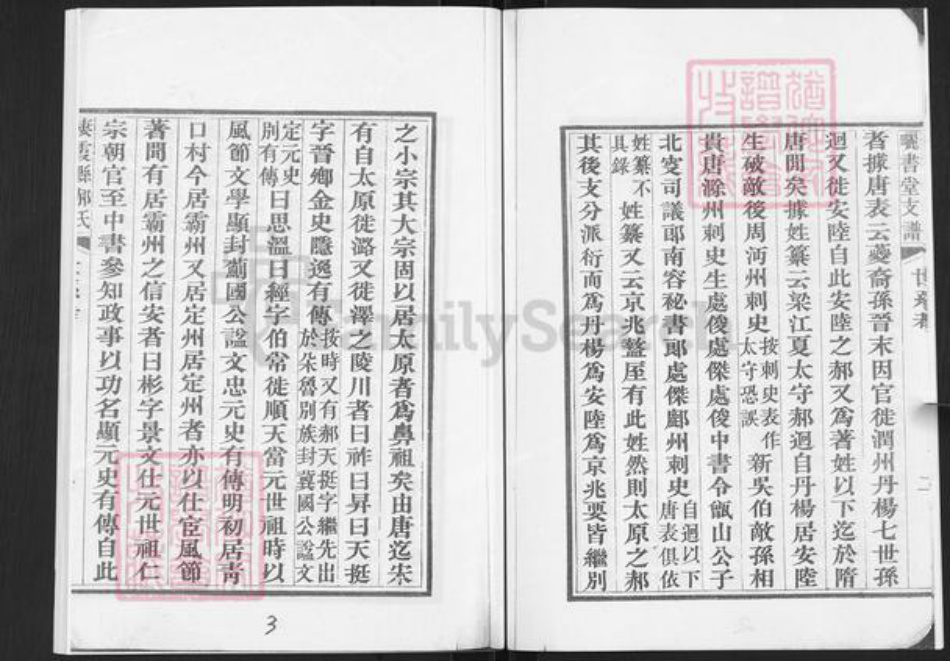 曬書堂支譜
者據唐表云蔓裔孫晉末因官徙潤州丹楊七世孫
迥又徙安陸自此安陸之郝又為著姓以下迄於隋
唐聞矣據姓纂云梁江夏太守郝迥自丹楊居安陸
生破敵後周沔州刺史按刺史表作太守恐誤新吳伯敵孫相
貴唐滁州刺史生處俊處傑處俊中書令甑山公子
北叟司議郎南容秘書郎處傑鄜州刺史自迥以下唐表俱依
姓纂不具錄姓纂又云京兆盩厔有此姓然則太原之郝
其後支分派衍而為丹楊為安陸為京兆要皆繼別
之小宗其大宗固以居太原者為鼻祖矣由唐迄宋
有自太原徙潞又徙澤之陵川者曰祚曰昇曰天挺
字晉卿金史隱逸有傳按時又有郝天挺字繼先出於朵魯別族封冀國公諡文
定元史別有傳曰思溫曰經字伯常徙順天當元世祖時以
風節文學顯封薊國公諡文忠元史有傳明初居青
口村今居霸州又居定州居定州者亦以仕宦風節
著聞有居霸州之信安者曰彬字景文仕元世祖仁
宗朝官至中書參知政事以功名顯元史有傳自此
棲霞縣郝氏
3
FamilySearch